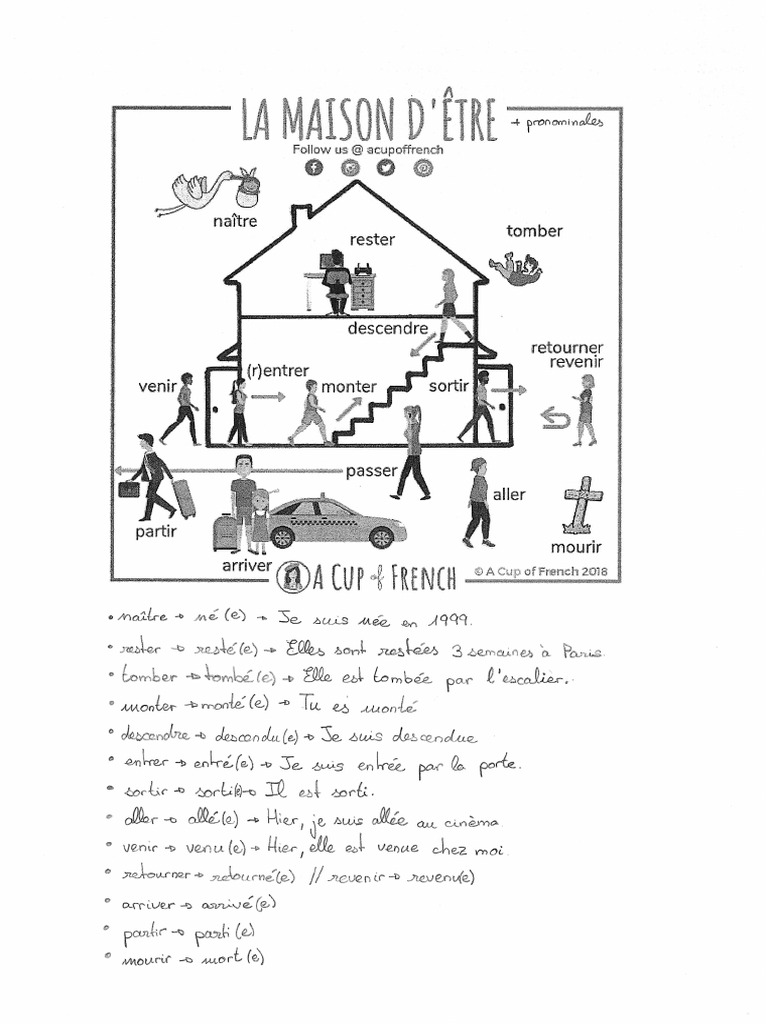 LA MAISON D'ÊTRE
+ pronominales
Follow us @ acupoffrench
naître
rester
tomber
descendre
retourner
revenir
venir
(r)entrer
monter
sortir
passer
partir
aller
arriver
mourir
A CUP of FRENCH
© A Cup of French 2018
• naître → né(e) → Je suis née en 1999.
• rester → resté(e) → Elles sont restées 3 semaines à Paris
• tomber → tombé(e) → Elle est tombée par l'escalier.
• monter → monté(e) → Tu es monté
• descendre → descendu(e) → Je suis descendue
• entrer → entré(e) → Je suis entrée par la porte.
• sortir → sorti(e) → Il est sorti.
• aller → allé(e) → Hier, je suis allée au cinèma
• venir → venu(e) → Hier, elle est venue chez moi
• retourner → retourné(e) // revenir → revenu(e)
• arriver → arrivé(e)
• partir → parti(e)
• mourir → mort(e)